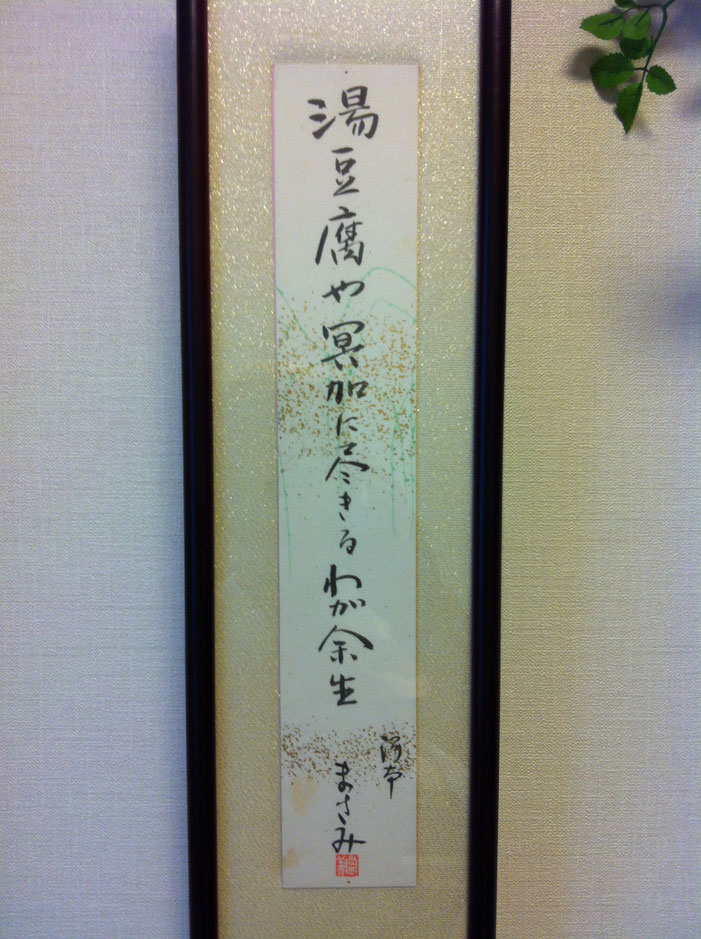 湯豆腐や冥加に尽きるわが余生
河本
まさみ